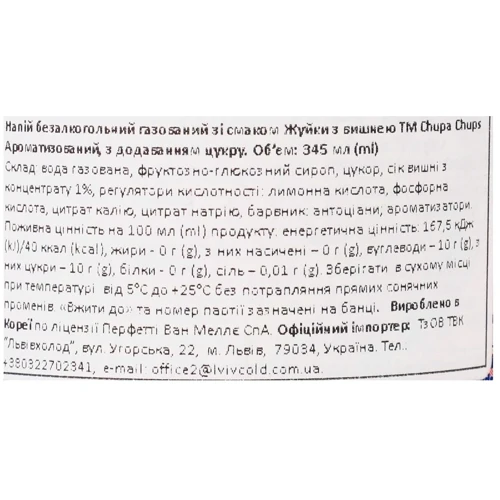 Напій безалкогольний газований зі смаком Жуйки з вишнею ТМ Chupa Chups
Ароматизований, з додаванням цукру. Об'єм: 345 мл (ml)
Склад: вода газована, фруктозно-глюкозний сироп, цукор, сік вишні з
концентрату 1%, регулятори кислотності: лимонна кислота, фосфорна
кислота, цитрат калію, цитрат натрію, барвник: антоціани; ароматизатори.
Поживна цінність на 100 мл (ml) продукту: енергетична цінність: 167,5 кДж
(kJ)/40 ккал (kcal), жири - 0 г (g), з них насичені – 0 г (g), вуглеводи – 10 г (g), з
них цукри – 10 г (g), білки - 0 г (g), сіль – 0,01 г (g). Зберігати в сухому місці
при температурі від 5°С до +25°С без потрапляння прямих сонячних
променів «Вжити до» та номер партії зазначені на банці. Вироблено в
Кореї по ліцензії Перфетті Ван Мелле СпА. Офіційний імпортер: ТзОВ ТВК
"Львівхолод", вул. Угорська, 22, м. Львів, 79034, Україна. Тел.:
+380322702341, e-mail: office2@lvivcold.com.ua.